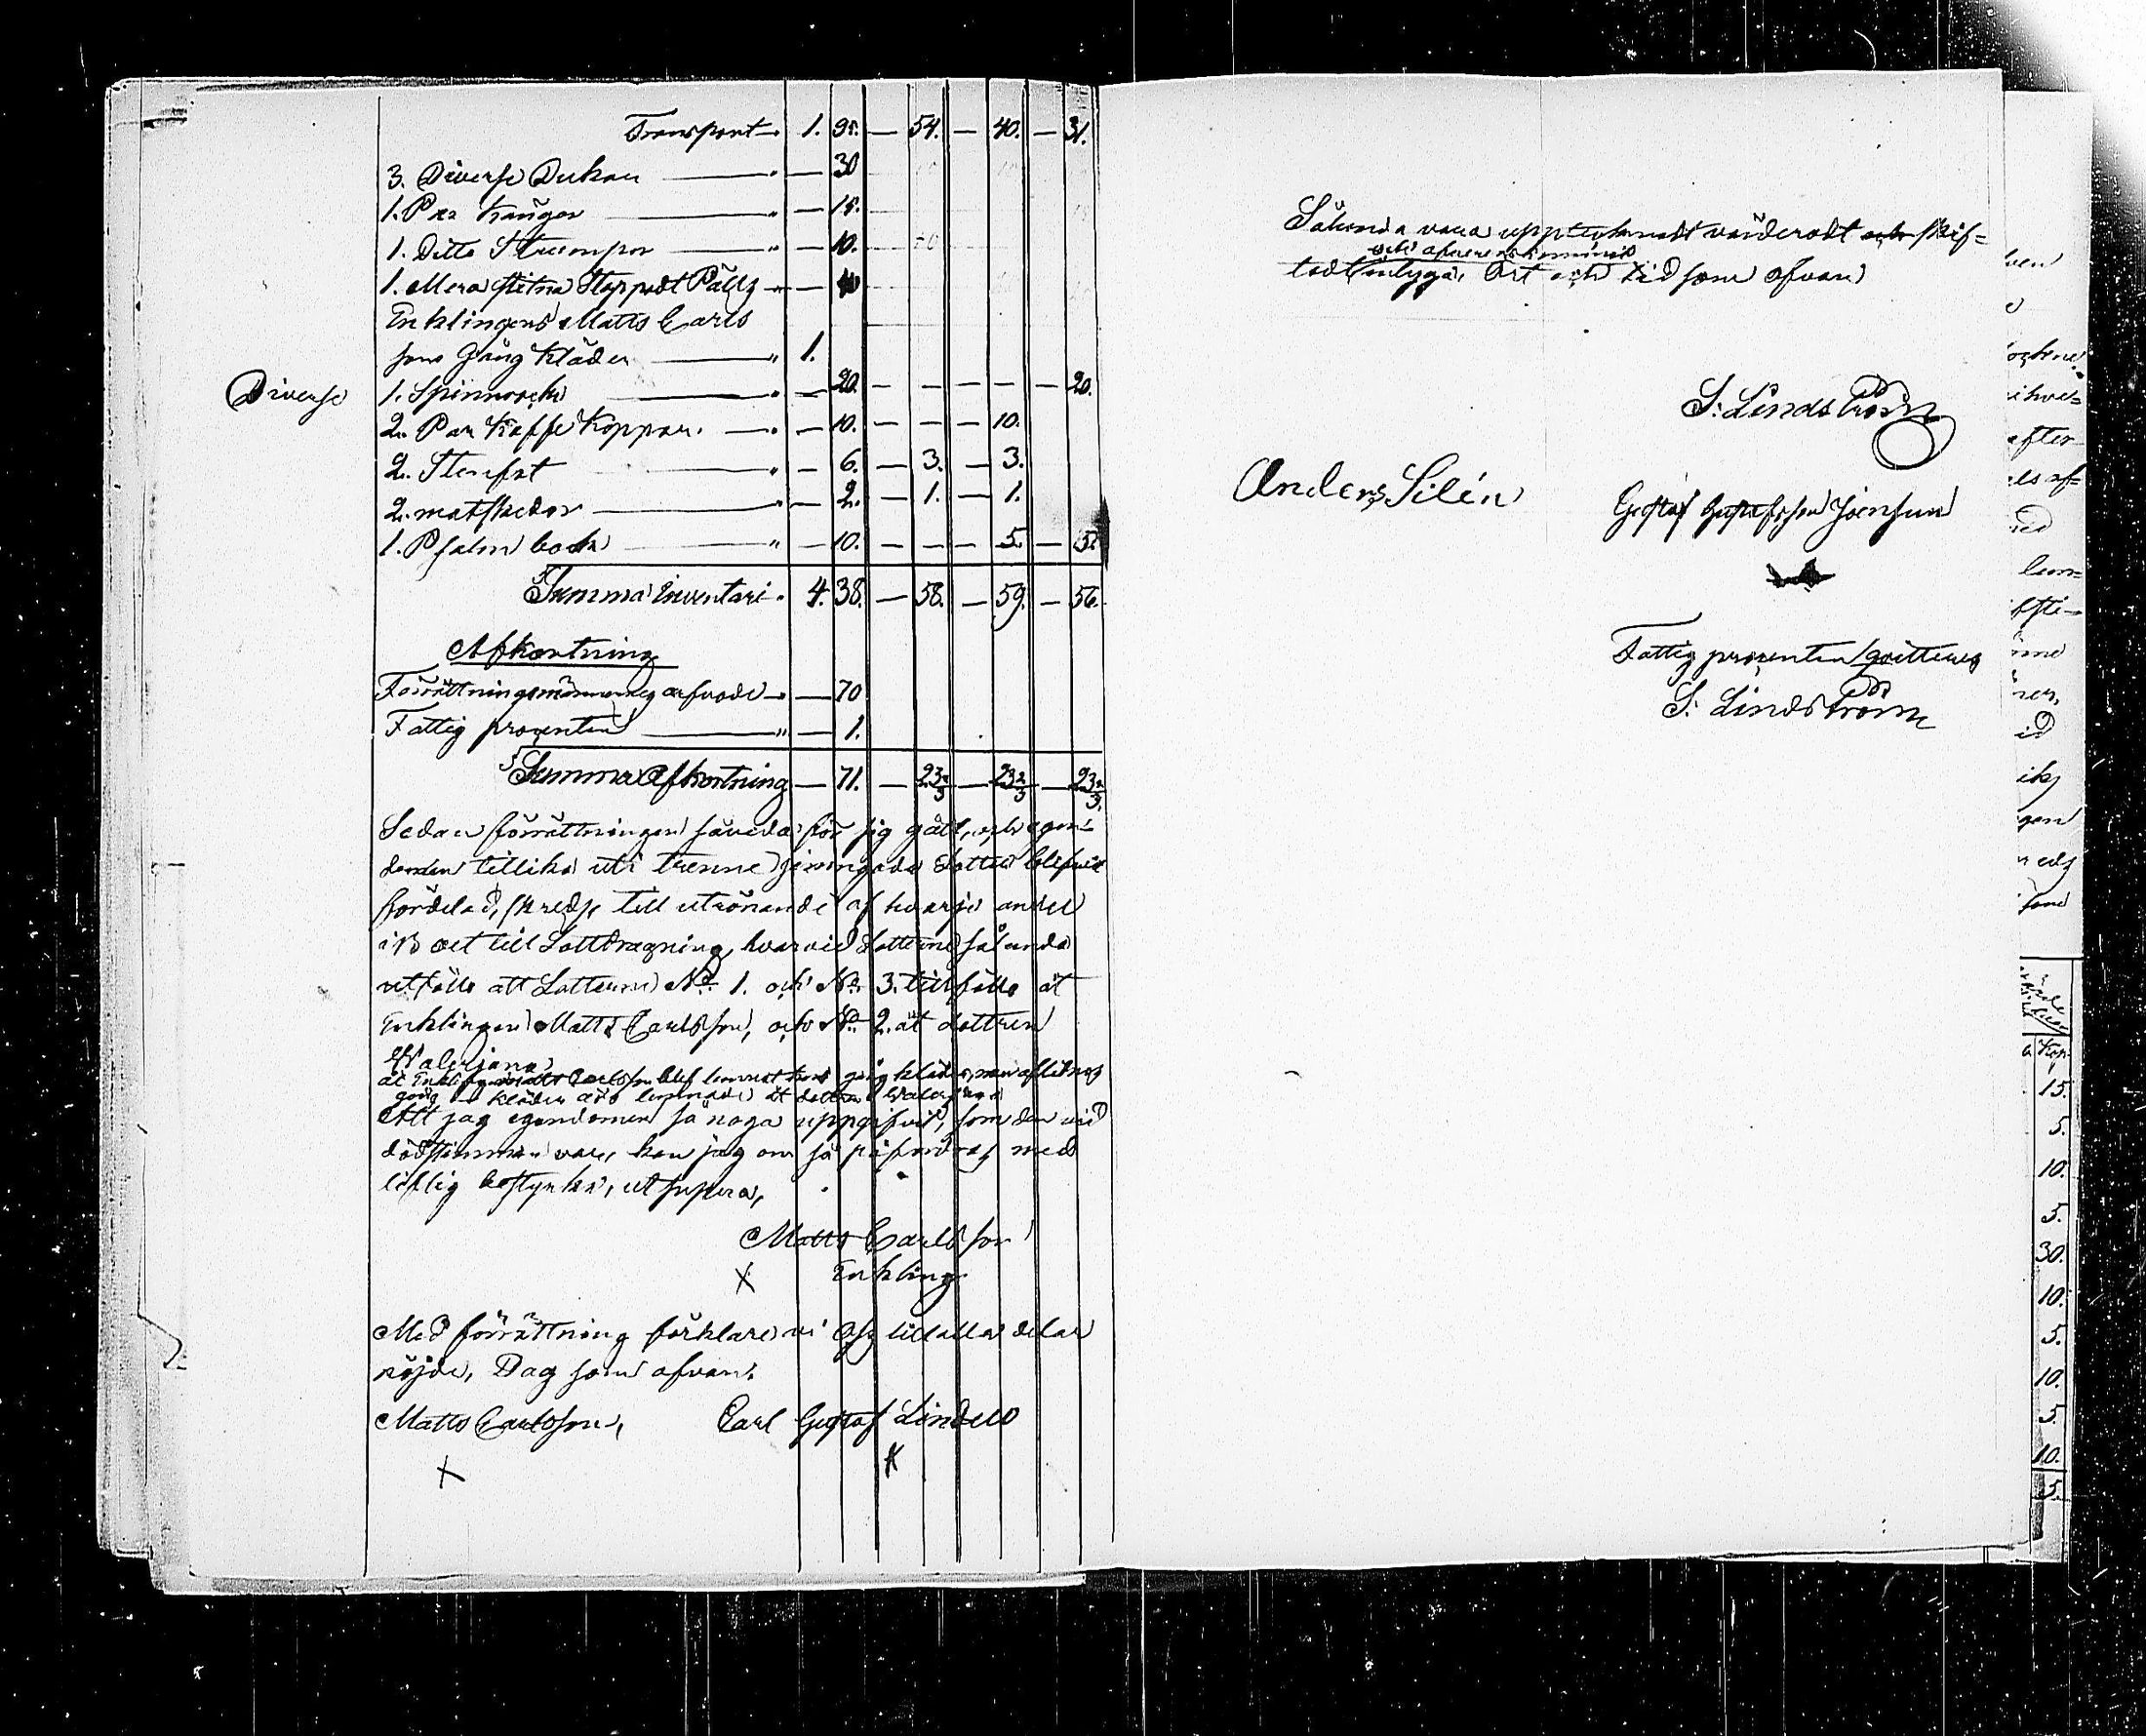 Transport 1. 95. — 54. — 40. — 31.
3. Diverse Dukar — 30
1. Par Kängor — 15.
1. Ditto Strumpor — 10.
1. Mera slitna Stoppadt Pälts — 40
Enklingens Matts Carls
sons Gång Kläder 1.
Diverse 1. Spinnrock — 20. — — — — — 20.
2. Par Kaffe Koppar. — 10. — — — 10.
2. Stenfat — 6. — 3. — 3.
2. matskedar — 2. — 1. — 1.
1. Psalm bock — 10. — — — 5. — 5.
Summa Inventari 4. 38. — 58. — 59. — 56.
Afkortning
Förrättningsmännens arfvode — 70
Fattig procenten — 1.
Summa Afkortning — 71. — 23 2/3 — 23 2/3 — 23 2/3.
Sedan förrättningen såvida för sig gått, och egen-
domen tillika uti trenne jemngoda Lotter blifvit
fördelad, skredts till utrönande af hvarje andel
till Lottdragning, hvarvid Lotterne sålunda
utfälle att Lotterne No 1. och No 3. tillfälle åt
Enklingen Matts Carlsson, och No 2. åt dottren
Walerjana
åt Enklingen Matts Carlsson blef lemnat hans gång kläder, men aflidnes
gång kläder lemnade åt dottren Walerjana
Att jag egendomen så noga uppgifvit, som den vid
dödstimman var, kan jag om så påfordras med
liflig ed styrka, ut supra,
Matts Carlsson
X Enkling
Med förrättning förklare vi Oss till alla delar
nöjde, Dag som ofvan.
Matts Carlsson, Carl Gustaf Lindell
X X
Sålunda vara upptecknadt värderadt och skif-
tadt intyga, Ort och tid som ofvan
S. Lindström
Anders Silén Gustaf Gustafsson Joensuu
Fattig procenten qvitteras
S. Lindström
ven
after
Kop
15.
5.
10.
5.
30.
10.
5.
10.
5.
10.
5.